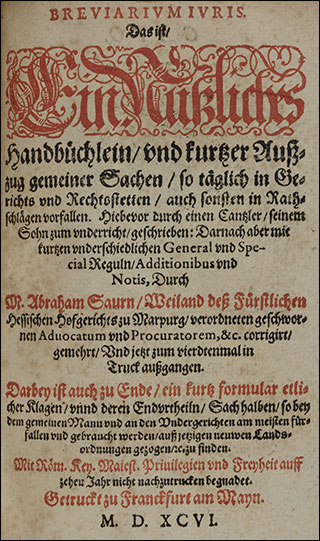 BREVIARIVM IVRIS.
Das ist/
Ein Nützliches
Handbüchlein/ vnd kurtzer Auß-
zug gemeiner Sachen/ so täglich in Ge-
richts vnd Rechtsstetten/ auch sonsten in Rath-
schlägen vorfallen. Hiebevor durch einen Cantzler/ seinem
Sohn zum vnderricht/ geschrieben: Darnach aber mit
kurtzen vnderschiedlichen General vnd Spe-
cial Reguln/ Additionibus vnd
Notis, Durch
M. Abraham Saurn/ Weiland deß Fürstlichen
Hessischen Hofgerichts zu Marpurg/ verordneten geschwor-
nen Aduocatum vnd Procuratorem, &c. corrigirt/
gemehrt/ Vnd jetzt zum vierdtenmal in
Truck außgangen.
Darbey ist auch zu Ende/ ein kurtz formular etli-
cher Klagen/ vnnd deren Endvrtheiln/ Sach halben/ so bey
dem gemeinen Mann vnd an den Vndergerichten am meisten für-
fallen vnd gebraucht werden/ auß jetzigen neuwen Lands-
ordnungen gezogen/ ꝛc. zu finden.
Mit Röm. Key. Maiest. Priuilegien vnd Freyheit auff
zehen Jahr nicht nachzutrucken begnadet.
Getruckt zu Franckfurt am Mayn.
M. D. XCVI.